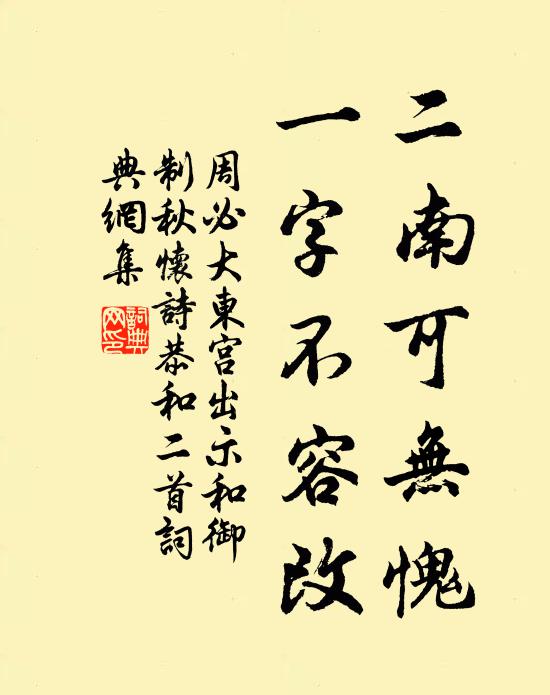 二南可無愧
一字不容改
周必大東宮出示和御
制秋懷詩恭和二首詞
典網集
詞典網印